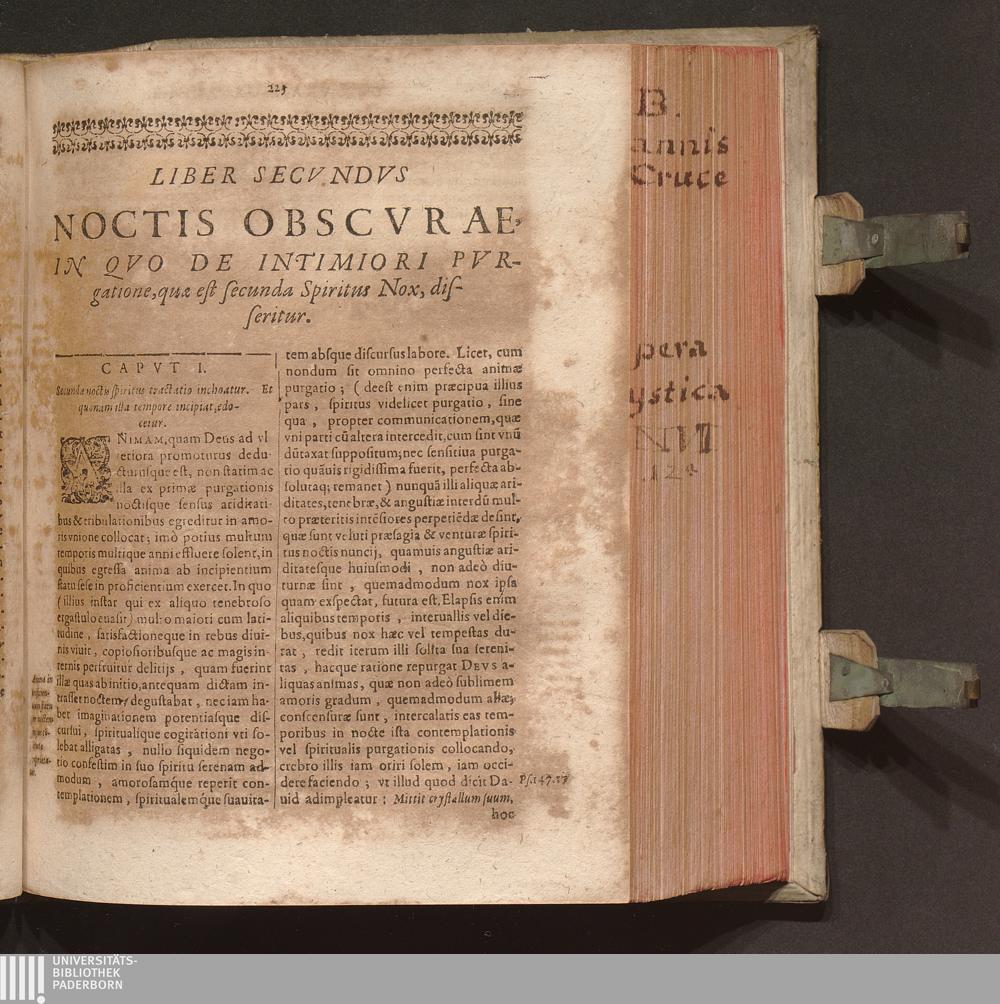 225
LIBER SECVNDVS
NOCTIS OBSCVRAE,
IN QVO DE INTIMIORI PVR-
gatione, quæ est secunda Spiritus Nox, dis-
seritur.
CAPVT I.
Secunda noctis spiritus tractatio inchoatur. Et
quonam illa tempore incipiat, edo-
cetur.
ANIMAM, quam Deus ad vl
teriora promoturus dedu-
cturusque est, non statim ac
illa ex primæ purgationis
noctisque sensus ariditati-
bus & tribulationibus egreditur in amo-
ris vnione collocat; imò potius multum
temporis multique anni effluere solent, in
quibus egressa anima ab incipientium
statu sese in proficientium exercet. In quo
(illius instar qui ex aliquo tenebroso
ergastulo euasit) multo maiori cum lati-
tudine, satisfactioneque in rebus diui-
nis viuit, copiosioribusque ac magis in-
ternis perfruitur delitijs, quam fuerint
illæ quas ab initio, antequam dictam in-
trasset noctem, degustabat, nec iam ha-
bet imaginationem potentiasque dis-
cursui, spiritualique cogitationi vti so-
lebat alligatas, nullo siquidem nego-
tio confestim in suo spiritu serenam ad-
modum, amorosamque reperit con-
templationem, spiritualemque suauita-
tem absque discursus labore. Licet, cum
nondum sit omnino perfecta animæ
purgatio; (deest enim præcipua illius
pars, spiritus videlicet purgatio, sine
qua, propter communicationem, quæ
vni parti cū altera intercedit, cum sint vnū
dūtaxat suppositum; nec sensitiua purga-
tio quāuis rigidissima fuerit, perfecta ab-
solutaq; remanet) nunquā illi aliquæ ari-
ditates, tenebræ, & angustiæ interdū mul-
to præteritis intēsiores perpetiēdæ desint,
quæ sunt veluti præsagia & venturæ spiri-
tus noctis nuncij, quamuis angustiæ ari-
ditatesque huiusmodi, non adeò diu-
turnæ sint, quemadmodum nox ipsa
quam exspectat, futura est. Elapsis enim
aliquibus temporis, interuallis vel die-
bus, quibus nox hæc vel tempestas du-
rat, redit iterum illi solita sua sereni-
tas, hacque ratione repurgat DEVS a-
liquas animas, quæ non adeò sublimem
amoris gradum, quemadmodum aliæ,
conscensuræ sunt, intercalatis eas tem-
poribus in nocte ista contemplationis
vel spiritualis purgationis collocando,
crebro illis iam oriri solem, iam occi-
dere faciendo; vt illud quod dicit Da-
uid adimpleatur: Mittit crystallum suum,
Ps. 147.17
hoc
B.
annis
Cruce
pera
ystica
UNIVERSITÄTS-
BIBLIOTHEK
PADERBORN